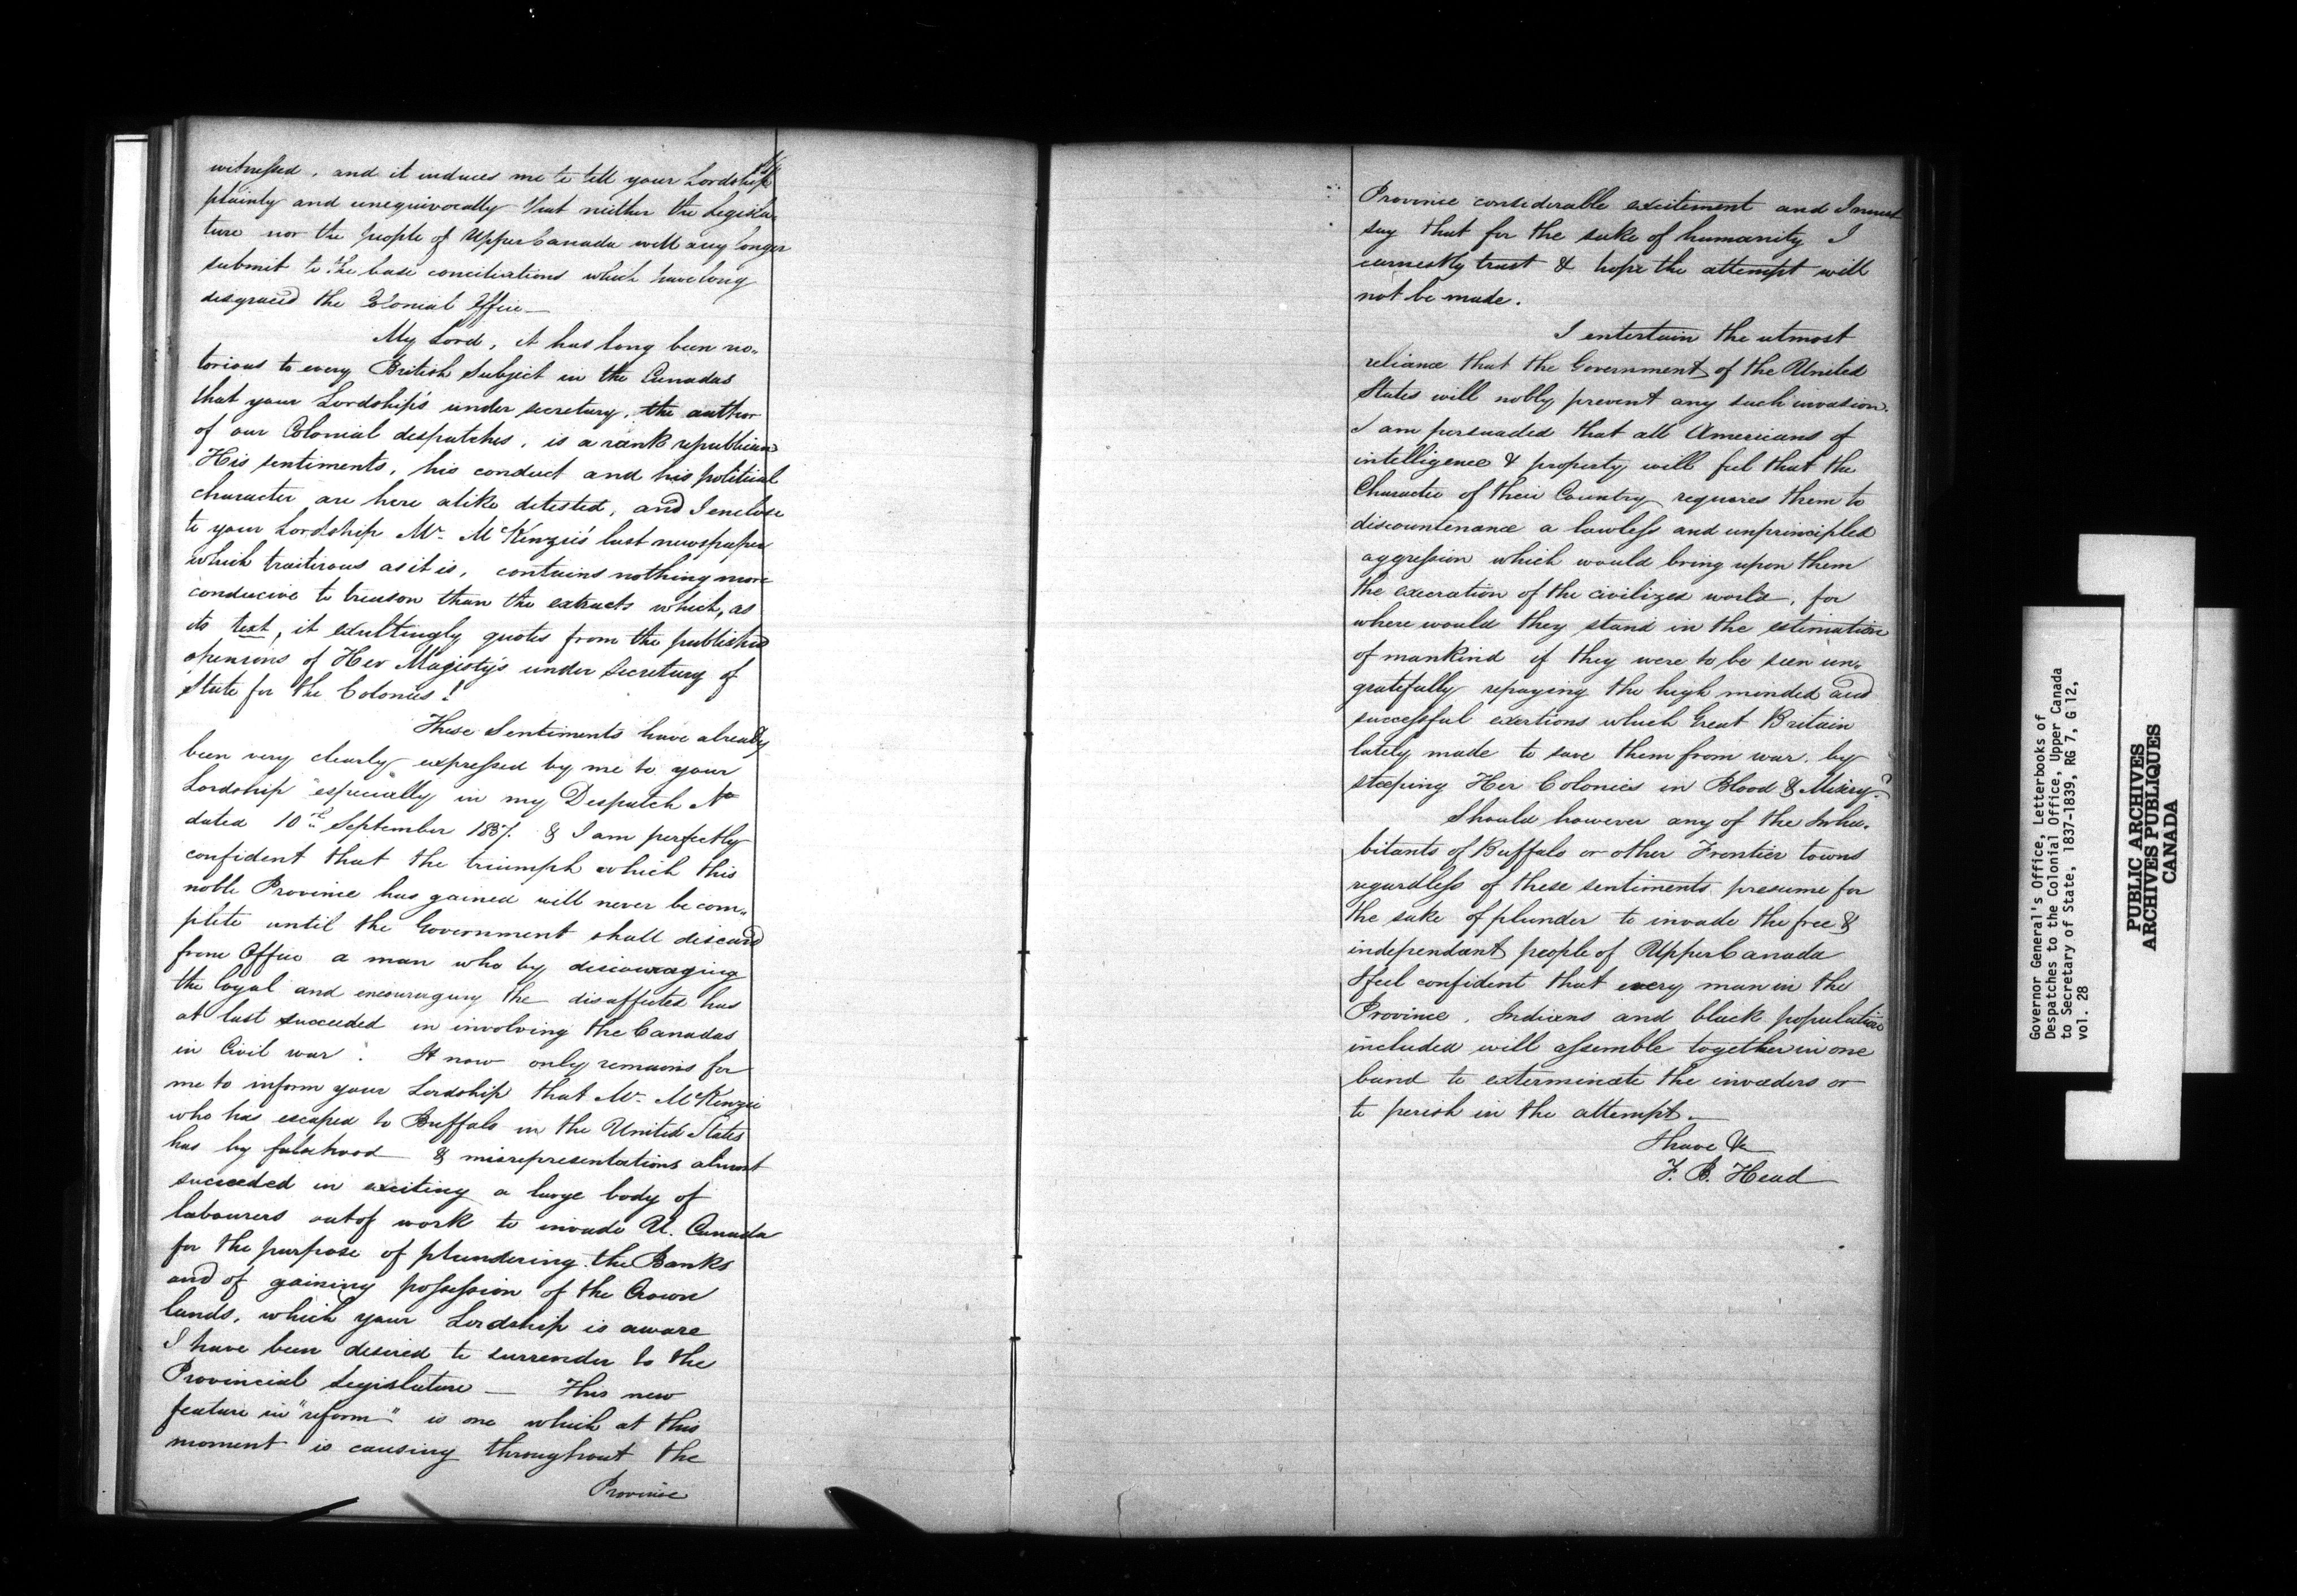 witnessed, and it induces me to tell your Lordship
plainly and unequivocally that neither the Legisla-
ture nor the people of Upper Canada will any longer
submit to the base conciliations which have long
disgraced the Colonial Office —
My Lord, it has long been no-
torious to every British Subject in the Canadas
that your Lordship's under secretary, the author
of our Colonial despatches, is a rank republican
His sentiments, his conduct and his political
character are here alike detested, and I enclose
to your Lordship Mr. McKenzie's last newspaper
which traitirous as it is, contains nothing more
conducive to treason than the extracts which, as
its text, it exultingly quotes from the published
opinions of Her Magisty's under Secretary of
State for the Colonies!
These Sentiments have already
been very clearly expressed by me to your
Lordship especially in my Despatch No
dated 10th September 1837. & I am perfectly
confident that the triumph which this
noble Province has gained will never be com-
plete until the Government shall discard
from Office a man who by discouraging
the loyal and encouraging the disaffected has
at last succeeded in involving the Canadas
in Civil war. It now only remains for
me to inform your Lordship that Mr. McKenzie
who has escaped to Buffalo in the United States
has by falsehood & misrepresentations almost
succeeded in exciting a large body of
labourers out of work to invade U. Canada
for the purpose of plundering the Banks
and of gaining possession of the Crown
lands, which your Lordship is aware
I have been desired to surrender to the
Provincial Legislature — This new
feature in "reform" is one which at this
moment is causing throughout the
Province
Province considerable excitement and I must
say that for the sake of humanity I
earnestly trust & hope the attempt will
not be made.
I entertain the utmost
reliance that the Government of the United
States will nobly prevent any such invasion.
I am persuaded that all Americans of
intelligence & property will feel that the
Character of their Country requires them to
discountenance a lawless and unprincipled
aggression which would bring upon them
the execration of the civilized world, for
where would they stand in the estimation
of mankind if they were to be seen un-
gratefully repaying the high minded and
successful exertions which Great Britain
lately made to save them from war, by
steeping Her Colonies in Blood & Misery?
Should however any of the Inha-
bitants of Buffalo or other Frontier towns
regardless of these sentiments presume for
the sake of plunder to invade the free &
independant people of Upper Canada
I feel confident that every man in the
Province, Indians and black population
included will assemble together in one
band to exterminate the invaders or
to perish in the attempt.—
I have &c
F. B. Head
Governor General's Office, Letterbooks of
Despatches to the Colonial Office, Upper Canada
to Secretary of State, 1837-1839, RG 7, G 12,
vol. 28
PUBLIC ARCHIVES
ARCHIVES PUBLIQUES
CANADA